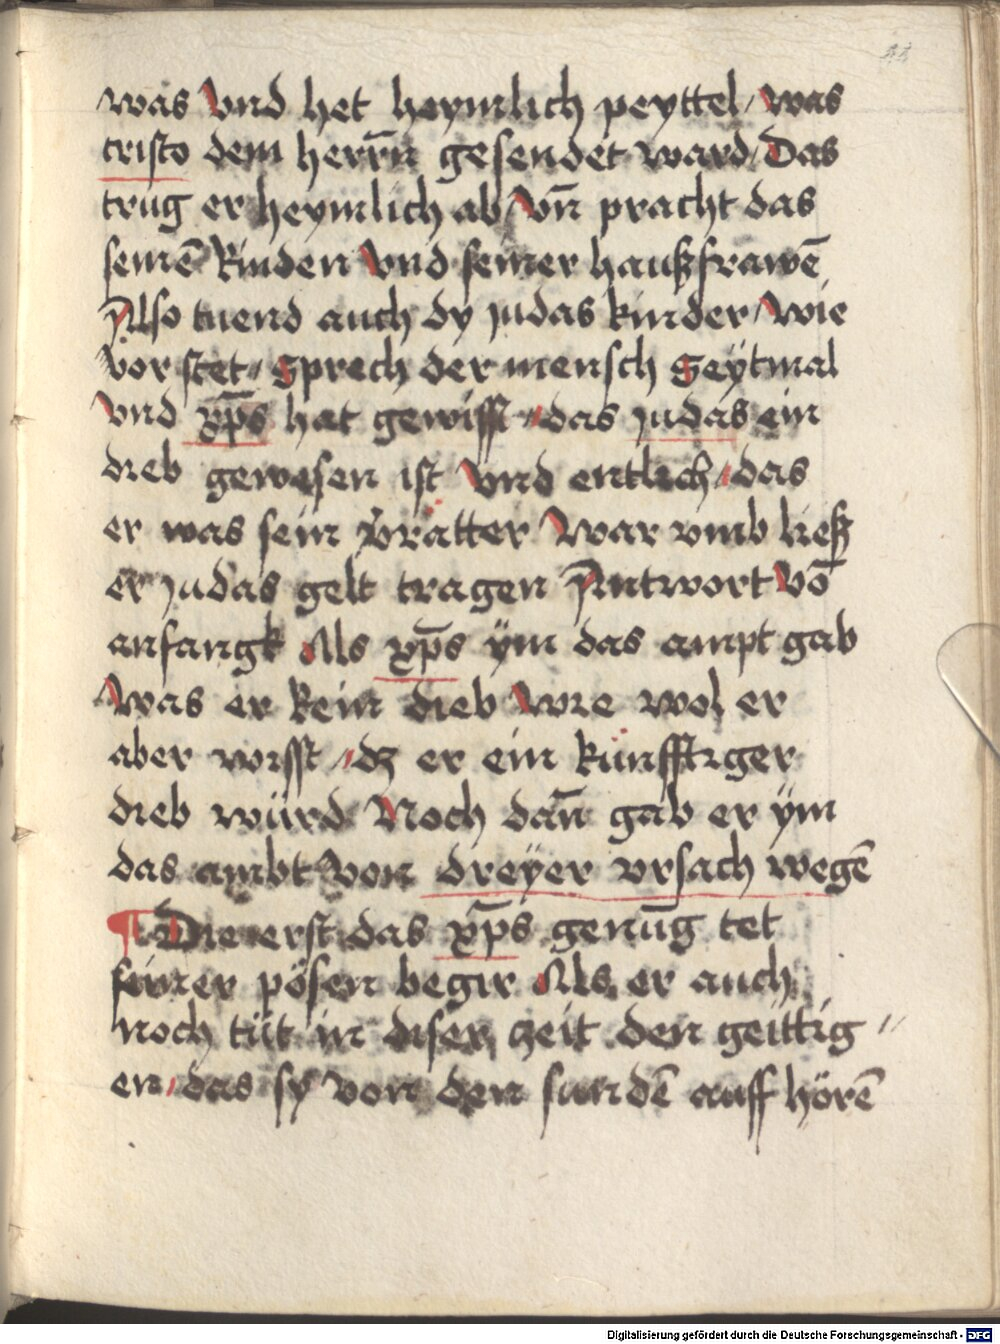 44
was vnd het heymlich peyttel / was
cristo dem herrn̄ gesendet ward / Das
trug er heymlich ab / vn̄ pracht das
seinē kinden vnd seiner haußfrawē
Also tuend auch dy judas kinder / wie
vor stet / Sprech der mensch Seytmal
vnd xp̄s hat gewisst / das judas ein
dieb gewesen ist vnd entlich / das
er was sein vërätter War vmb ließ
er judas gelt tragen Antwort võ
anfangk Als xp̄s ÿm das ampt gab
was er kein dieb wie wol er
aber wisst / dz er ein künfftiger
dieb würd Noch dan̄ gab er ÿm
das ambt von dreÿer vrsach wegē
¶ Die erst das xp̄s genug tet
seiner pösen begir Als er auch
noch tüt in diser zeit den geittig //
en / das sy von den sundē auff hörē
Digitalisierung gefördert durch die Deutsche Forschungsgemeinschaft - DFG